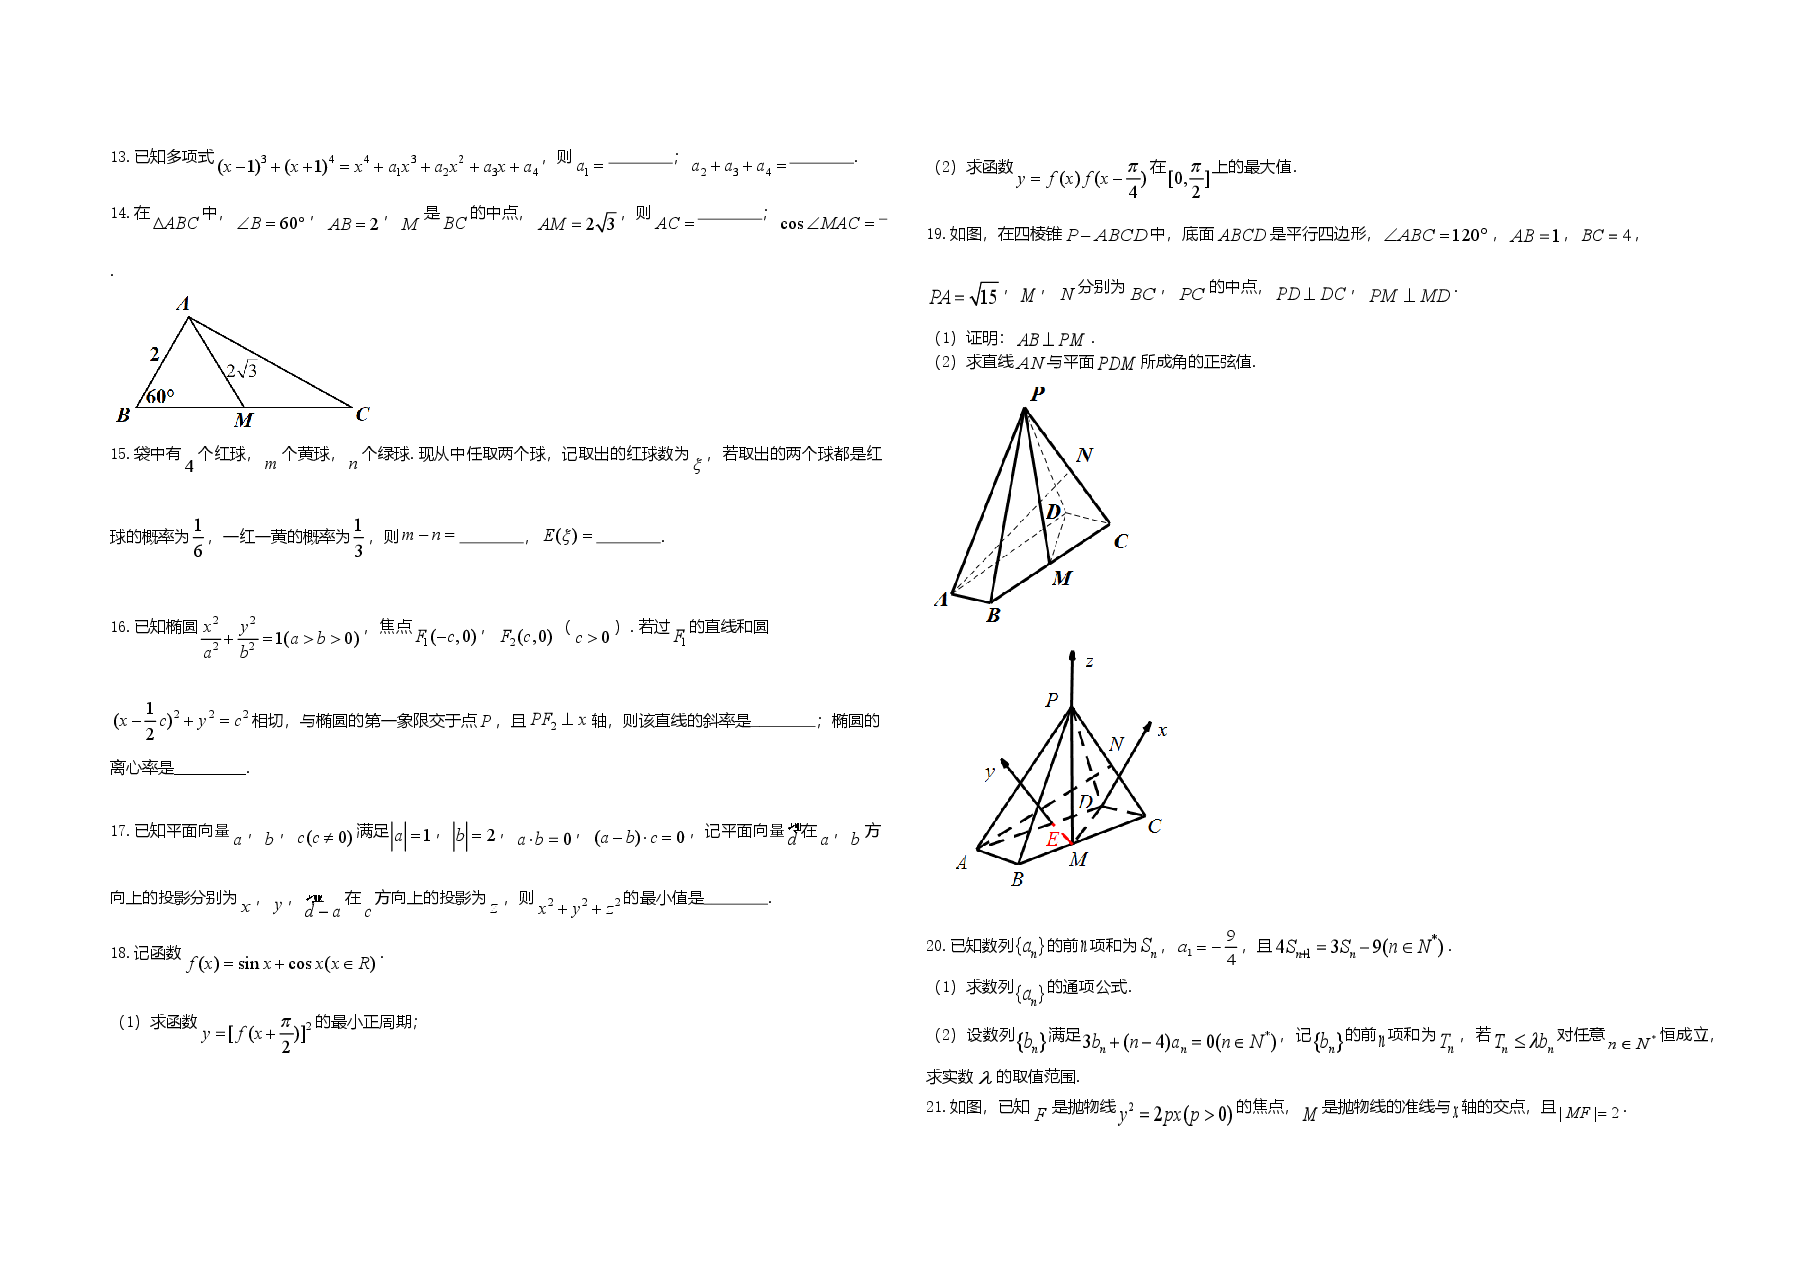 13.已知多项式(x−1)³+(x+1)⁴=x⁴+a₁x³+a₂x²+a₃x+a₄,则a₁=________;a₂+a₃+a₄=________.
14.在△ABC中,∠B=60°,AB=2,M是BC的中点,AM=2√3,则AC=________;cos∠MAC=_
.
A
2
2√3
60°
B
M
C
15.袋中有4个红球,m个黄球,n个绿球.现从中任取两个球,记取出的红球数为ξ,若取出的两个球都是红
球的概率为1/6,一红一黄的概率为1/3,则m−n=________,E(ξ)=________.
16.已知椭圆x²/a²+y²/b²=1(a>b>0),焦点F₁(−c,0),F₂(c,0)(c>0).若过F₁的直线和圆
(x−1/2c)²+y²=c²相切,与椭圆的第一象限交于点P,且PF₂⊥x轴,则该直线的斜率是________;椭圆的
离心率是_________.
17.已知平面向量a,b,c(c≠0)满足|a|=1,|b|=2,a·b=0,(a−b)·c=0,记平面向量d在a,b方
向上的投影分别为x,y,d−a在c方向上的投影为z,则x²+y²+z²的最小值是________.
18.记函数f(x)=sin x+cos x(x∈R).
(1)求函数y=[f(x+π/2)]²的最小正周期;
(2)求函数y=f(x)f(x−π/4)在[0,π/2]上的最大值.
19.如图,在四棱锥P−ABCD中,底面ABCD是平行四边形,∠ABC=120°,AB=1,BC=4,
PA=√15,M,N分别为BC,PC的中点,PD⊥DC,PM⊥MD.
(1)证明:AB⊥PM.
(2)求直线AN与平面PDM所成角的正弦值.
P
N
D
C
M
A
B
z
P
x
N
y
D
C
E
M
A
B
20.已知数列{aₙ}的前n项和为Sₙ,a₁=−9/4,且4Sₙ₊₁=3Sₙ−9(n∈N*).
(1)求数列{aₙ}的通项公式.
(2)设数列{bₙ}满足3bₙ+(n−4)aₙ=0(n∈N*),记{bₙ}的前n项和为Tₙ,若Tₙ≤λbₙ对任意n∈N*恒成立,
求实数λ的取值范围.
21.如图,已知F是抛物线y²=2px(p>0)的焦点,M是抛物线的准线与x轴的交点,且|MF|=2.